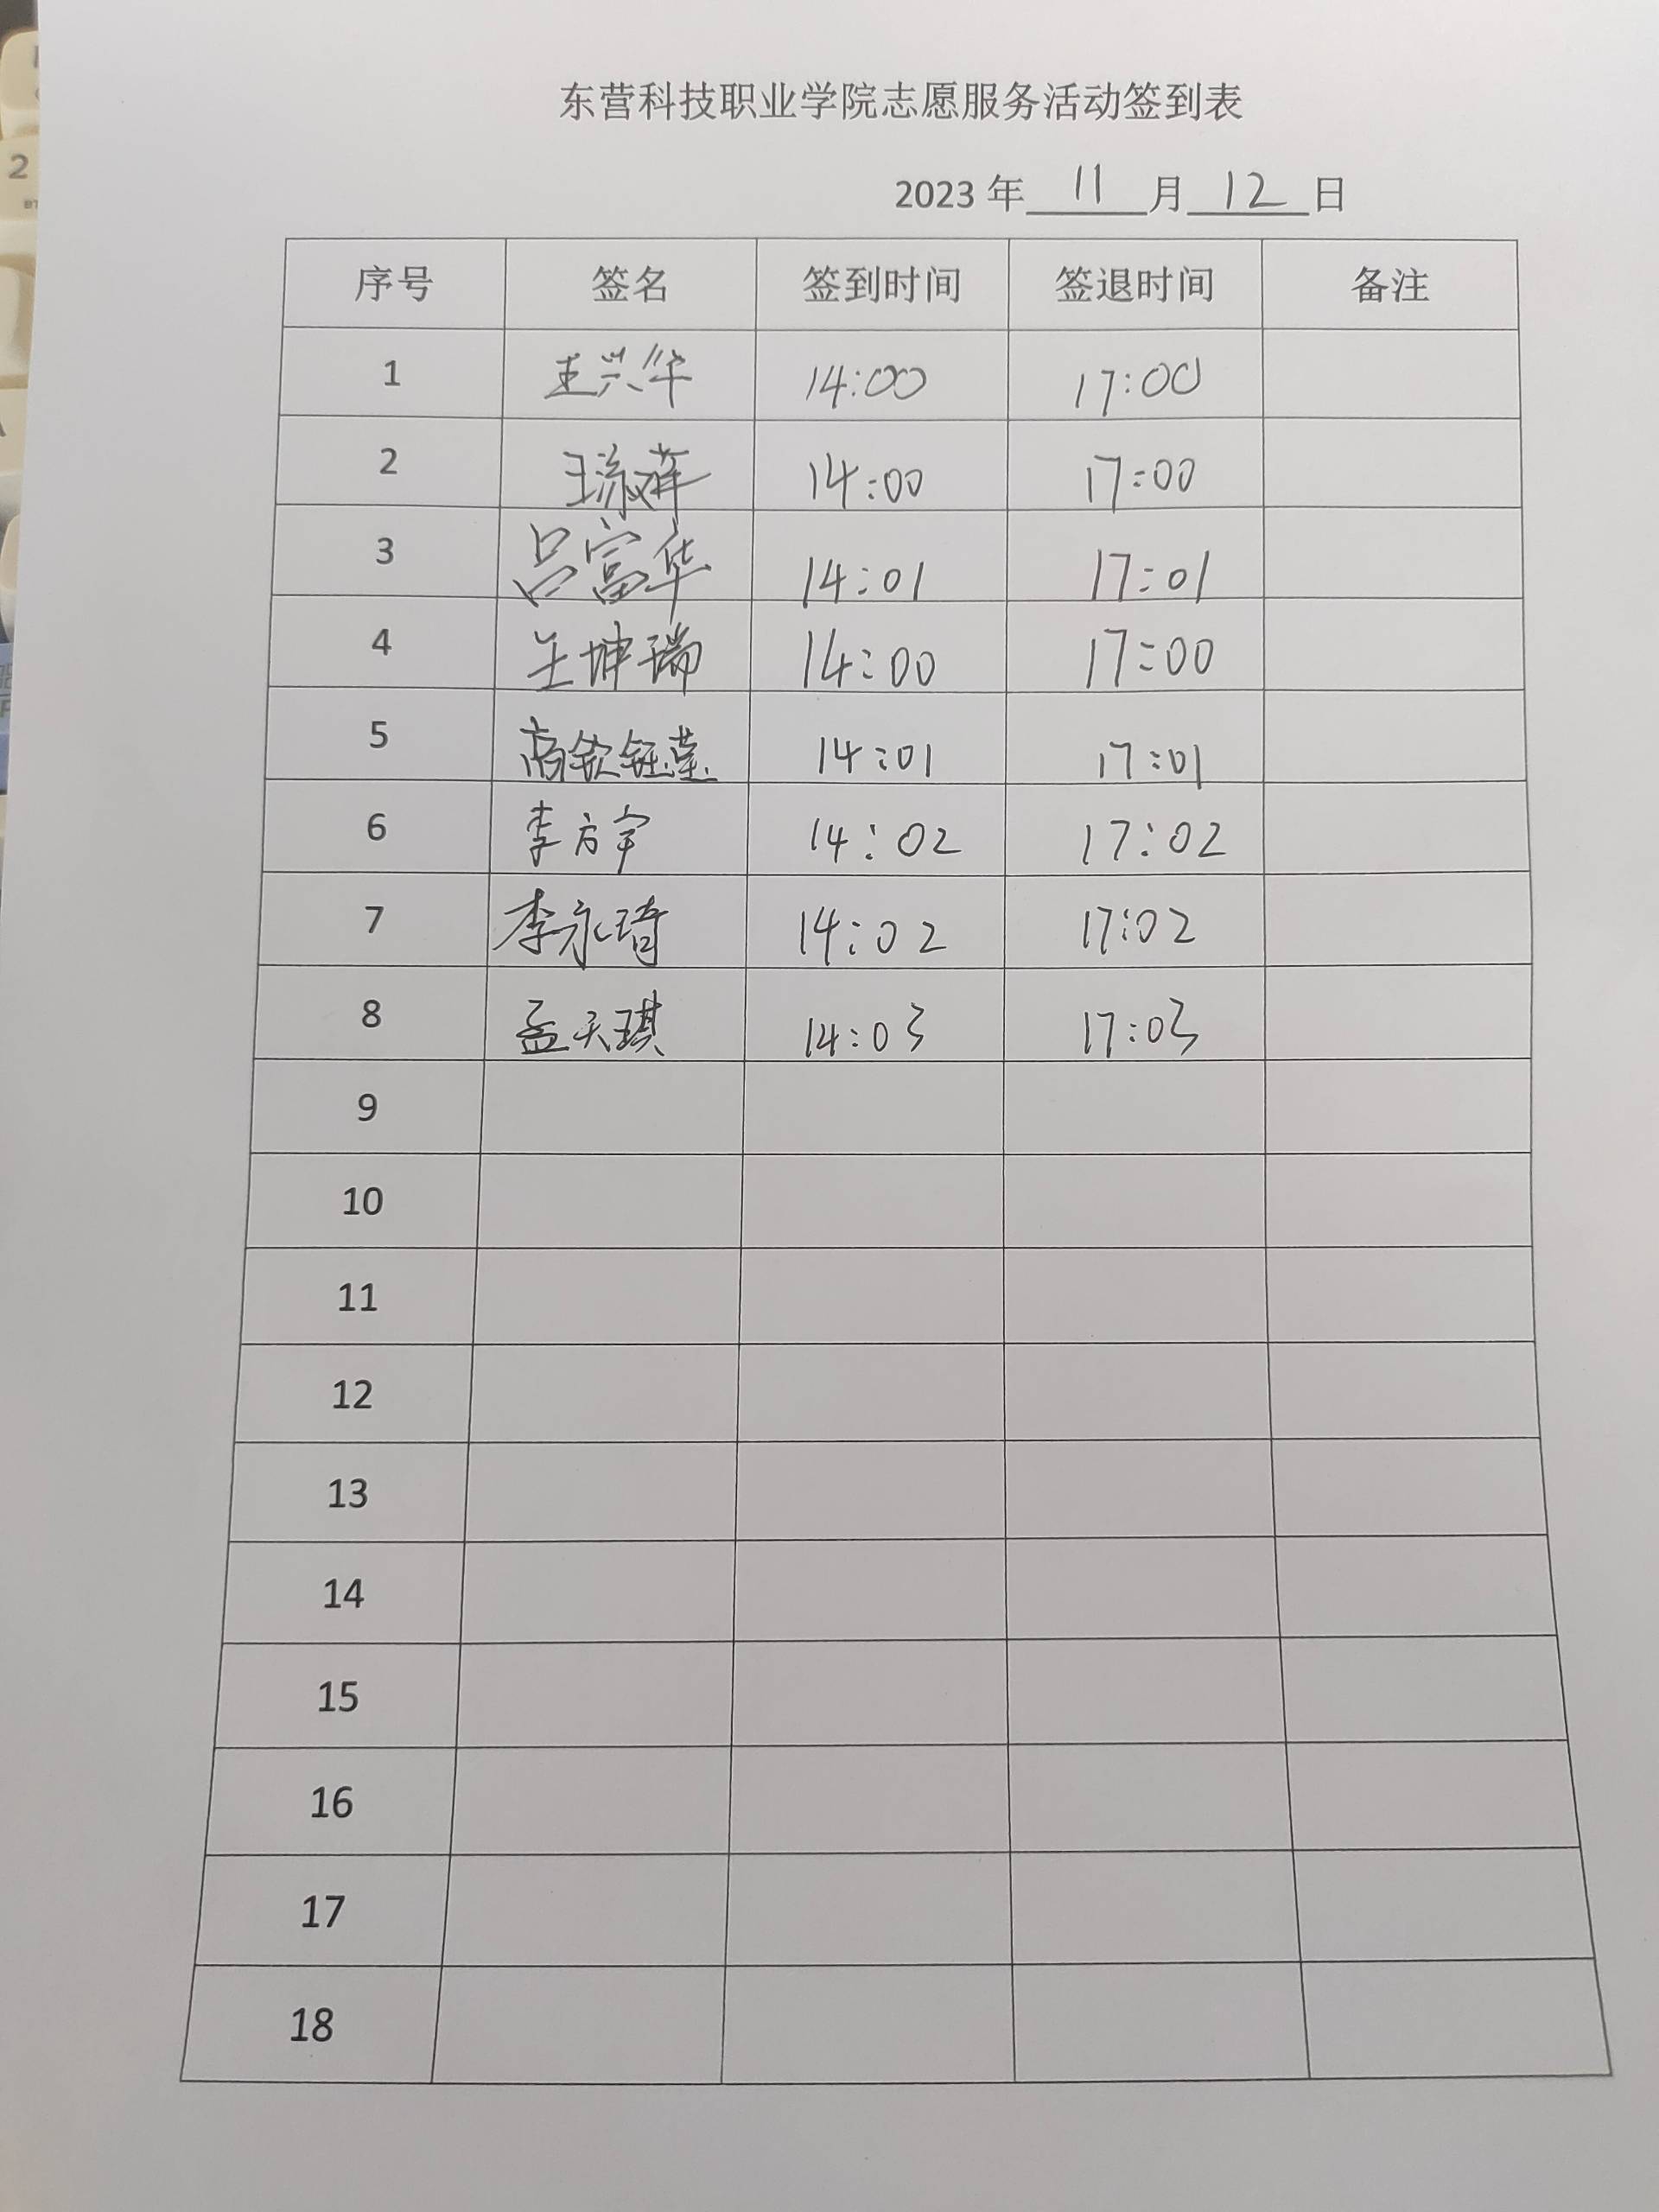 东营科技职业学院志愿服务活动签到表
2023 年 11 月 12 日
序号 签名 签到时间 签退时间 备注
1 王兴华 14:00 17:00
2 14:00 17:00
3 吕富华 14:01 17:01
4 王坤瑞 14:00 17:00
5 商钦钰莹 14:01 17:01
6 李方宇 14:02 17:02
7 李永琦 14:02 17:02
8 孟天琪 14:03 17:03
9
10
11
12
13
14
15
16
17
18
2